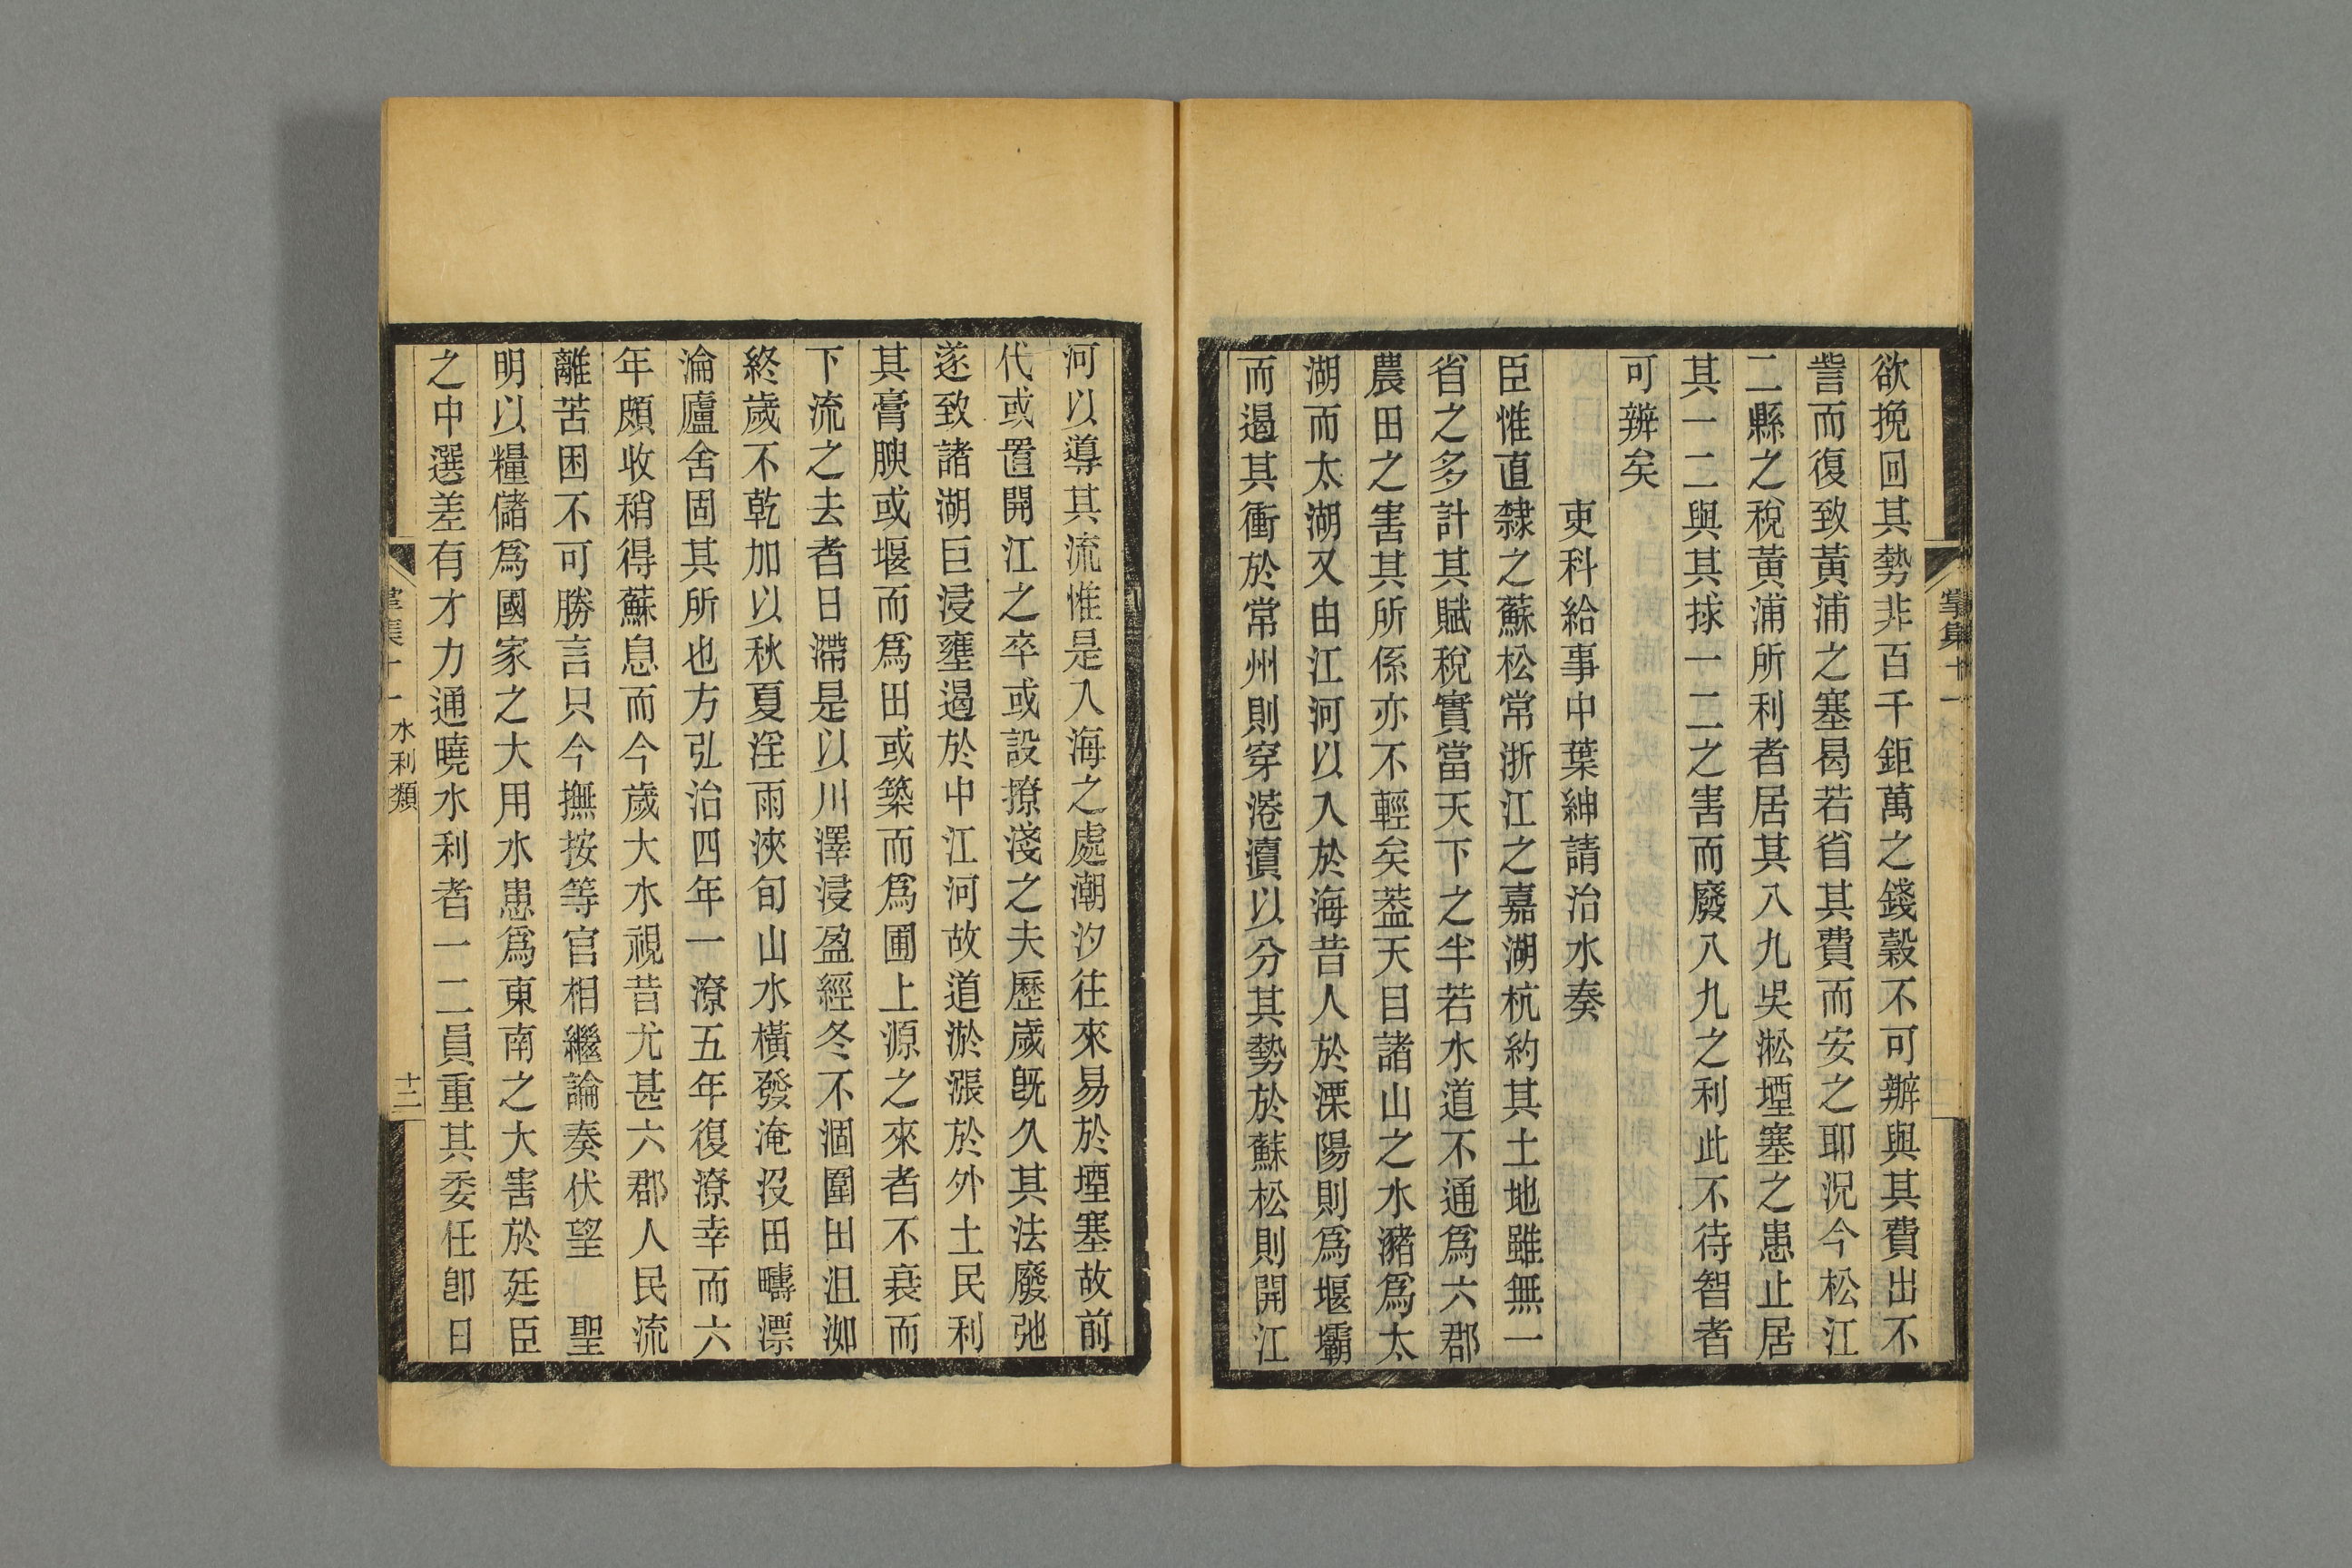 欲挽回其勢非百千鉅萬之錢穀不可辦與其費出不
訾而復致黃浦之塞曷若省其費而安之耶況今松江
二縣之稅黃浦所利者居其八九吳淞堙塞之患止居
其一二與其捄一二之害而廢八九之利此不待智者
可辨矣
吏科給事中葉紳請治水奏
臣惟直隸之蘇松常浙江之嘉湖杭約其土地雖無一
省之多計其賦稅實當天下之半若水道不通爲六郡
農田之害其所係亦不輕矣蓋天目諸山之水瀦爲太
湖而太湖又由江河以入於海昔人於溧陽則爲堰壩
而遏其衝於常州則穿港瀆以分其勢於蘇松則開江
河以導其流惟是入海之處潮汐往來易於堙塞故前
代或置開江之卒或設撩淺之夫歷歲旣久其法廢弛
遂致諸湖巨浸壅遏於中江河故道淤漲於外土民利
其膏腴或堰而爲田或築而爲圃上源之來者不衰而
下流之去者日滯是以川澤浸盈經冬不涸圍田沮洳
終歲不乾加以秋夏淫雨浹旬山水橫發淹沒田疇漂
淪廬舍固其所也方弘治四年一潦五年復潦幸而六
年頗收稍得蘇息而今歲大水視昔尤甚六郡人民流
離苦困不可勝言只今撫按等官相繼論奏伏望　聖
明以糧儲爲國家之大用水患爲東南之大害於廷臣
之中選差有才力通曉水利者一二員重其委任卽日
掌集十一　水利類　十二